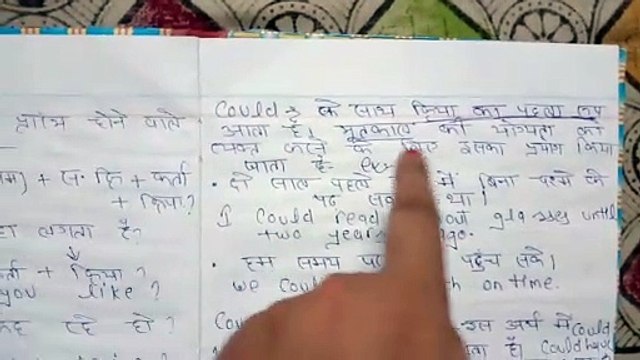 प्रारंभ होने वाले
+ स. क्रि + कर्ता
+ क्रिया?
लगता है?
+ क्रिया?
you like?
रहे हो?
Could :- के साथ क्रिया का पहला रूप
आता है। भूतकाल की योग्यता को
व्यक्त करने के लिए इसका प्रयोग किया
जाता है-
• दो साल पहले में बिना चश्मे के
पढ़ था।
I could read glasses until
two years ago.
• हम समय पहुँच सके।
we on time.
इस अर्थ में could
है। could have